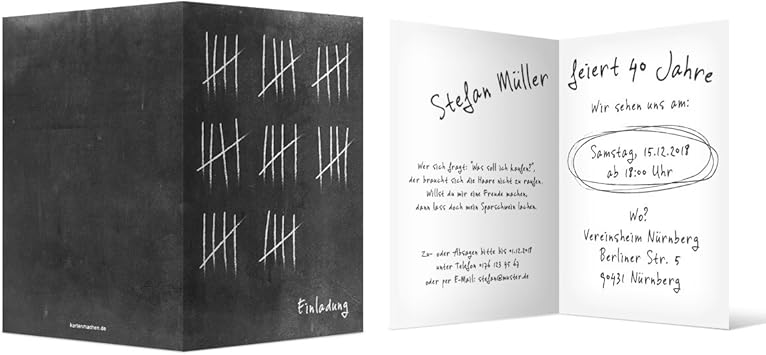 Einladung
kartenmachen.de
Stefan Müller
Wer sich fragt: "Was soll ich kaufen?",
der braucht sich die Haare nicht zu raufen.
Willst du mir eine Freude machen,
dann lass doch mein Sparschwein lachen.
Zu- oder Absagen bitte bis 01.12.2018
unter Telefon 0176 123 45 67
oder per E-Mail: stefan@muster.de
feiert 40 Jahre
Wir sehen uns am:
Samstag, 15.12.2018
ab 18:00 Uhr
Wo?
Vereinsheim Nürnberg
Berliner Str. 5
90431 Nürnberg